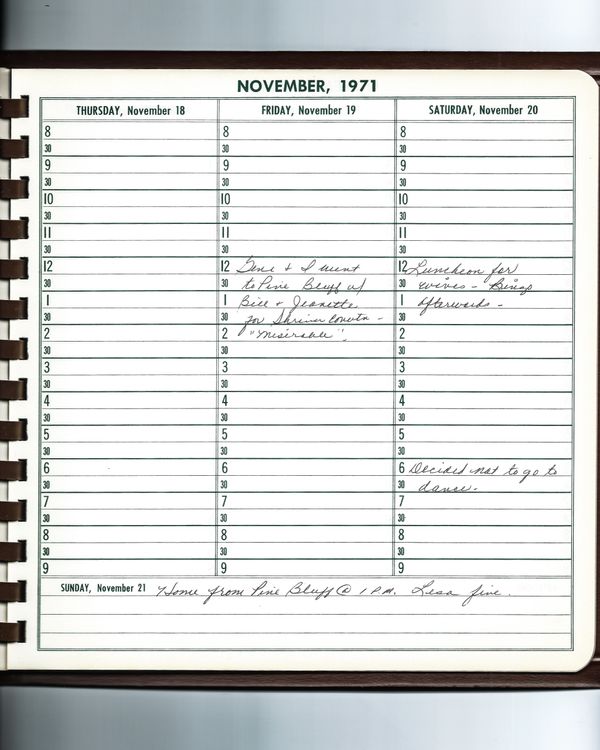 NOVEMBER, 1971
THURSDAY, November 18
8
30
9
30
10
30
11
30
12
30
1
30
2
30
3
30
4
30
5
30
6
30
7
30
8
30
9
FRIDAY, November 19
8
30
9
30
10
30
11
30
12 Gene & I went
30 to Pine Bluff w/
1 Bill & Jeanette
30 for Shrine -
2 "Misirable".
30
3
30
4
30
5
30
6
30
7
30
8
30
9
SATURDAY, November 20
8
30
9
30
10
30
11
30
12 Luncheon for
30 wives - Bingo
1 afterwards -
30
2
30
3
30
4
30
5
30
6 Decided not to go to
30 dance -
7
30
8
30
9
SUNDAY, November 21 Home from Pine Bluff @ 1 P.M. Lesa fine.